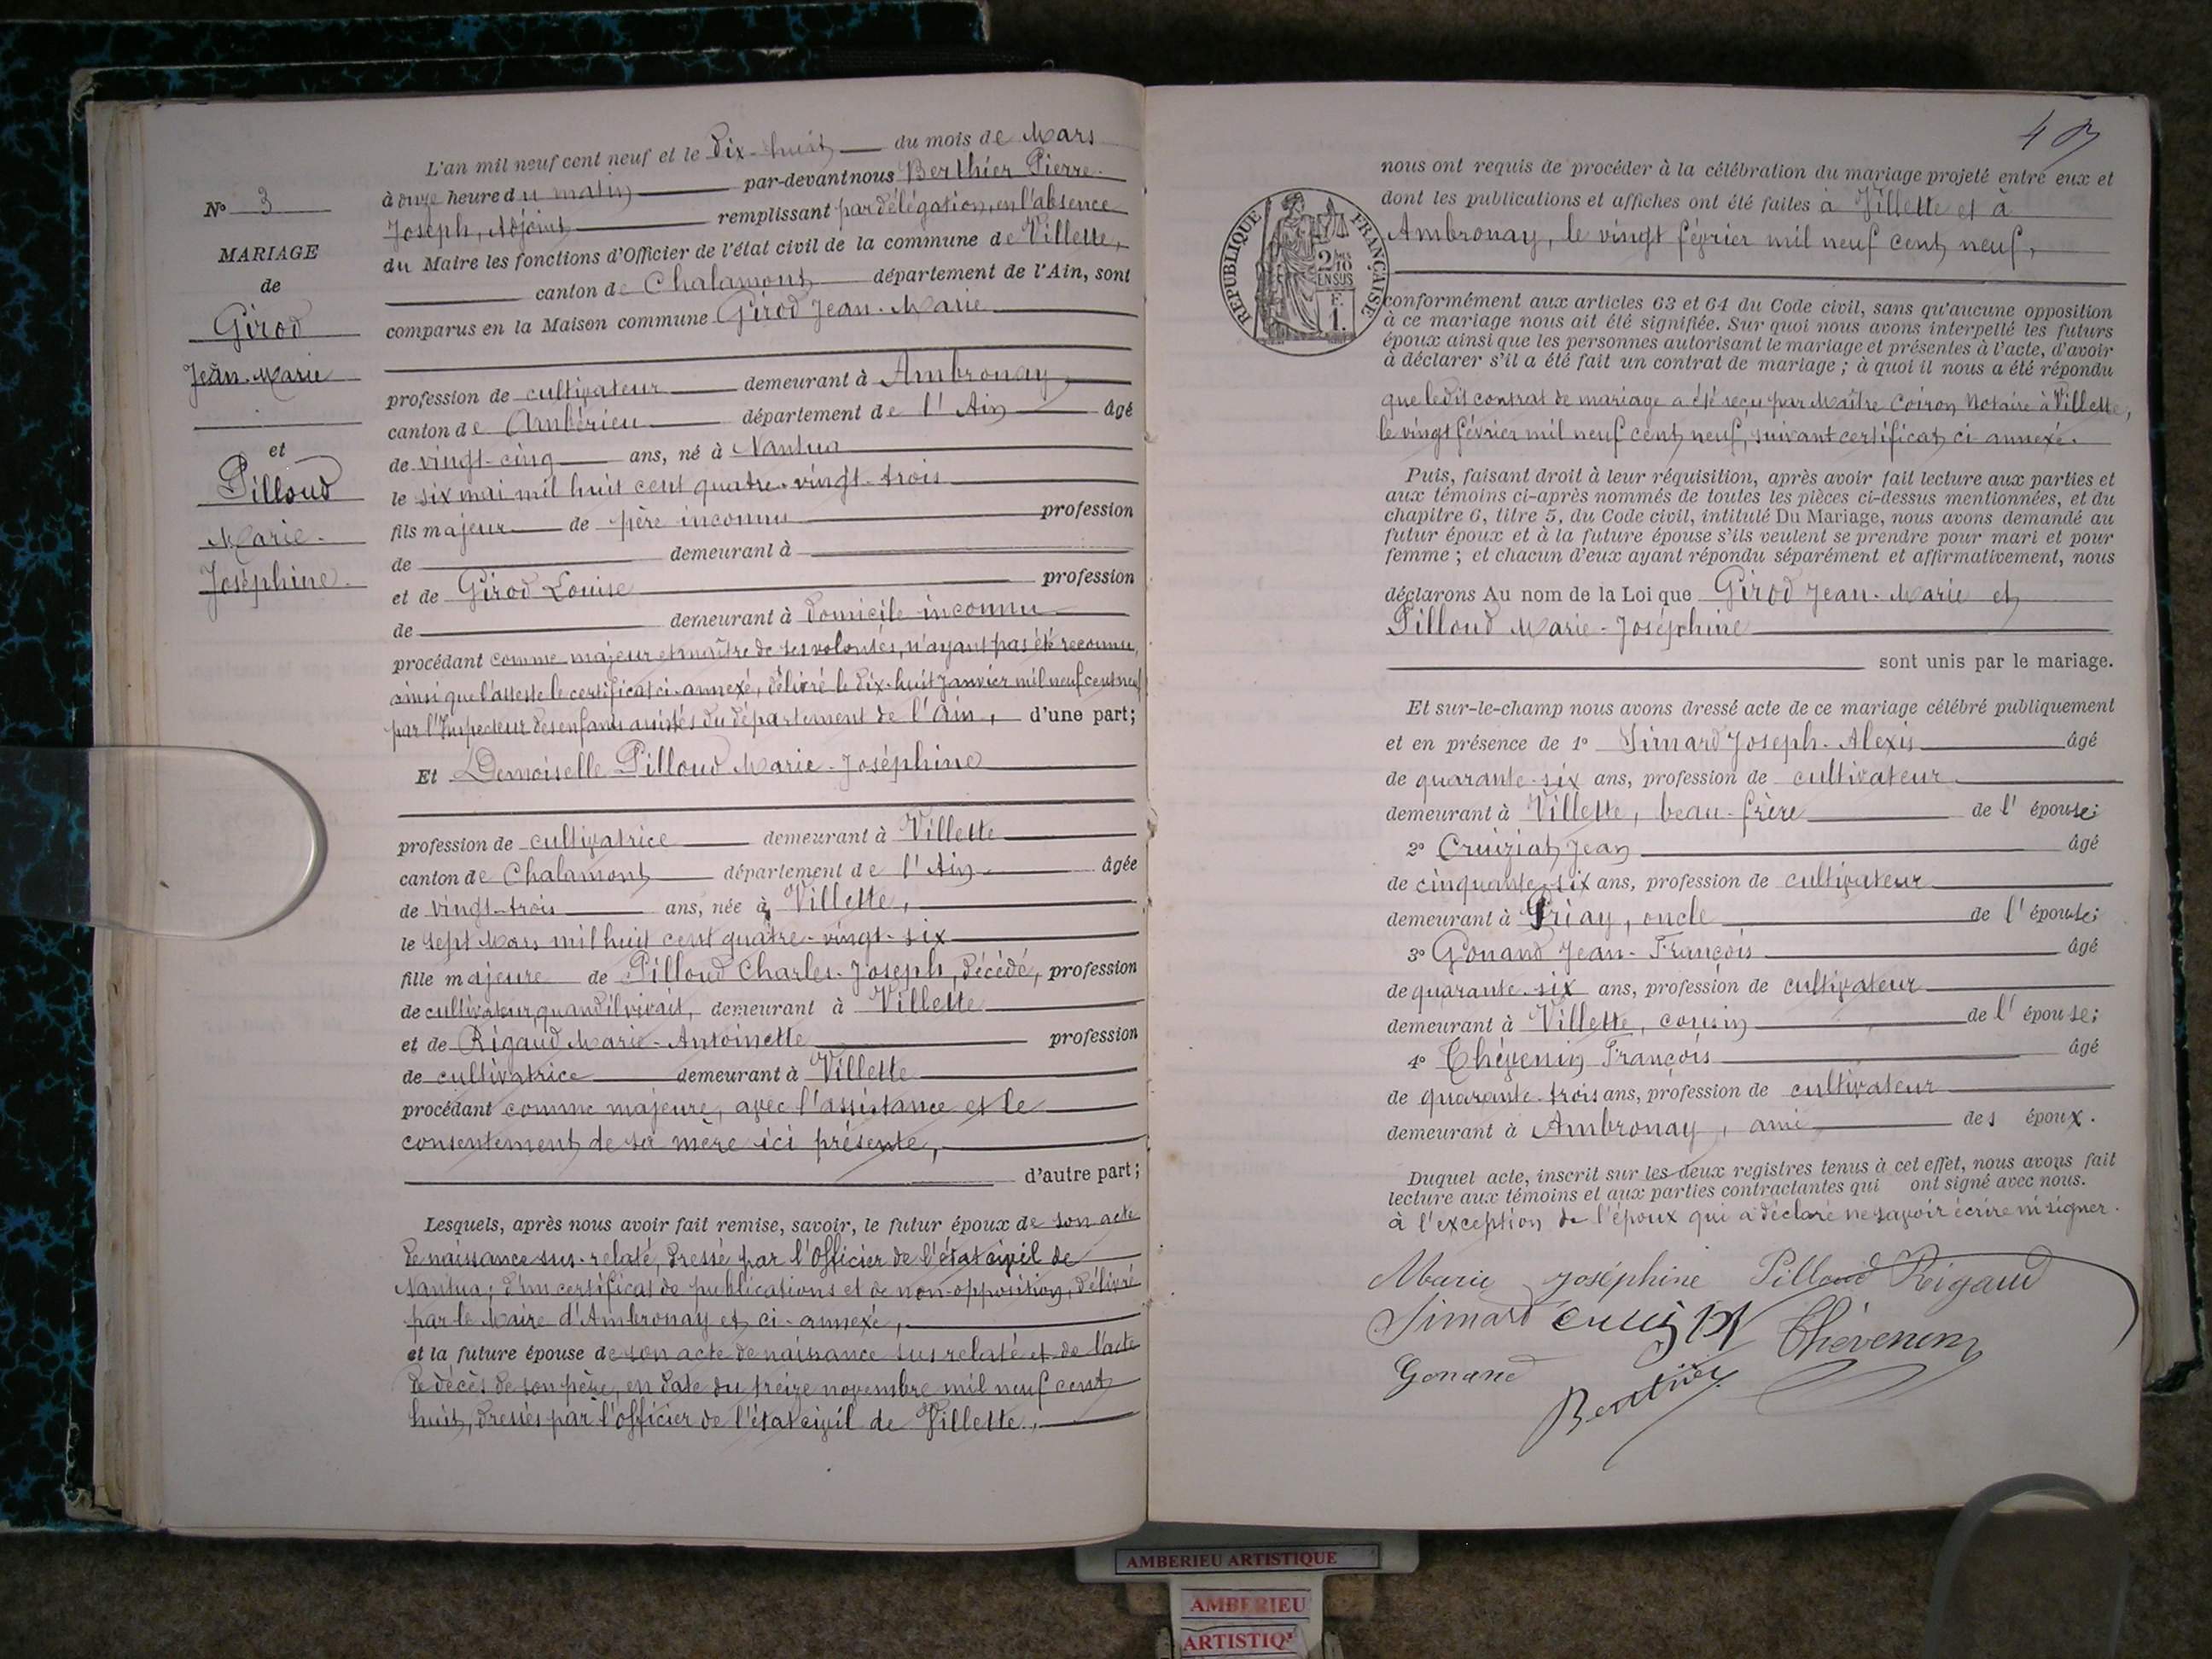 N° 3
MARIAGE
de
Girod
Jean-Marie
et
Pilloud
Marie-
Joséphine
L'an mil neuf cent neuf et le dix-huit du mois de Mars
à onze heure du matin par-devant nous Berthier Pierre-
Joseph, Adjoint remplissant par délégation, en l'absence
du Maire les fonctions d'Officier de l'état civil de la commune de Villette,
canton de Chalamont département de l'Ain, sont
comparus en la Maison commune Girod Jean-Marie
profession de cultivateur demeurant à Ambronay
canton de Ambérieu département de l'Ain âgé
de vingt-cinq ans, né à Nantua
le six mai mil huit cent quatre-vingt-trois
fils majeur de père inconnu profession
de demeurant à
et de Girod Louise profession
de demeurant à domicile inconnu
procédant comme majeur et maître de ses volontés, n'ayant pas été reconnu,
ainsi que l'atteste le certificat ci-annexé, délivré le dix-huit Janvier mil neuf cent neuf
par l'Inspecteur des enfants assistés du département de l'Ain, d'une part;
Et Demoiselle Pilloud Marie-Joséphine
profession de cultivatrice demeurant à Villette
canton de Chalamont département de l'Ain âgée
de vingt-trois ans, née à Villette,
le sept Mars mil huit cent quatre-vingt-six
fille majeure de Pilloud Charles-Joseph, décédé, profession
de cultivateur, quand il vivait, demeurant à Villette
et de Rigaud Marie-Antoinette profession
de cultivatrice demeurant à Villette
procédant comme majeure, avec l'assistance et le
consentement de sa mère ici présente,
d'autre part;
Lesquels, après nous avoir fait remise, savoir, le futur époux de son acte
de naissance sus-relaté, dressé par l'Officier de l'état civil de
Nantua; d'un certificat de publications et de non-opposition, délivré
par le Maire d'Ambronay et ci-annexé,
et la future épouse de son acte de naissance sus relaté et de l'acte
de décès de son père, en date du treize novembre mil neuf cent
huit, dressés par l'officier de l'état civil de Villette,
RÉPUBLIQUE FRANÇAISE
2/10
EN SUS
F.
1.
nous ont requis de procéder à la célébration du mariage projeté entre eux et
dont les publications et affiches ont été faites à Villette et à
Ambronay, le vingt février mil neuf cent neuf,
conformément aux articles 63 et 64 du Code civil, sans qu'aucune opposition
à ce mariage nous ait été signifiée. Sur quoi nous avons interpellé les futurs
époux ainsi que les personnes autorisant le mariage et présentes à l'acte, d'avoir
à déclarer s'il a été fait un contrat de mariage ; à quoi il nous a été répondu
que le dit contrat de mariage a été reçu par Maître Coiron Notaire à Villette,
le vingt février mil neuf cent neuf, suivant certificat ci annexé.
Puis, faisant droit à leur réquisition, après avoir fait lecture aux parties et
aux témoins ci-après nommés de toutes les pièces ci-dessus mentionnées, et du
chapitre 6, titre 5, du Code civil, intitulé Du Mariage, nous avons demandé au
futur époux et à la future épouse s'ils veulent se prendre pour mari et pour
femme ; et chacun d'eux ayant répondu séparément et affirmativement, nous
déclarons Au nom de la Loi que Girod Jean-Marie et
Pilloud Marie-Joséphine
sont unis par le mariage.
Et sur-le-champ nous avons dressé acte de ce mariage célébré publiquement
et en présence de 1° Simard Joseph-Alexis âgé
de quarante-six ans, profession de cultivateur
demeurant à Villette, beau-frère de l'épouse;
2° Cruiziat Jean âgé
de cinquante-six ans, profession de cultivateur
demeurant à Priay, oncle de l'épouse;
3° Gonand Jean-François âgé
de quarante-six ans, profession de cultivateur
demeurant à Villette, cousin de l'épouse;
4° Thévenin François âgé
de quarante-trois ans, profession de cultivateur
demeurant à Ambronay, ami des époux.
Duquel acte, inscrit sur les deux registres tenus à cet effet, nous avons fait
lecture aux témoins et aux parties contractantes qui ont signé avec nous.
à l'exception de l'époux qui a déclaré ne savoir écrire ni signer.
Marie Joséphine Pilloud Rigaud
Simard Thévenin
Gonand
Berthier
AMBERIEU ARTISTIQUE
AMBERIEU
ARTISTIQ